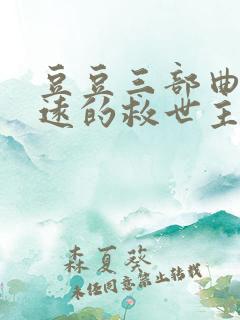 豆豆三部曲
遠的救世主
森夏葵
未经同意禁止转载